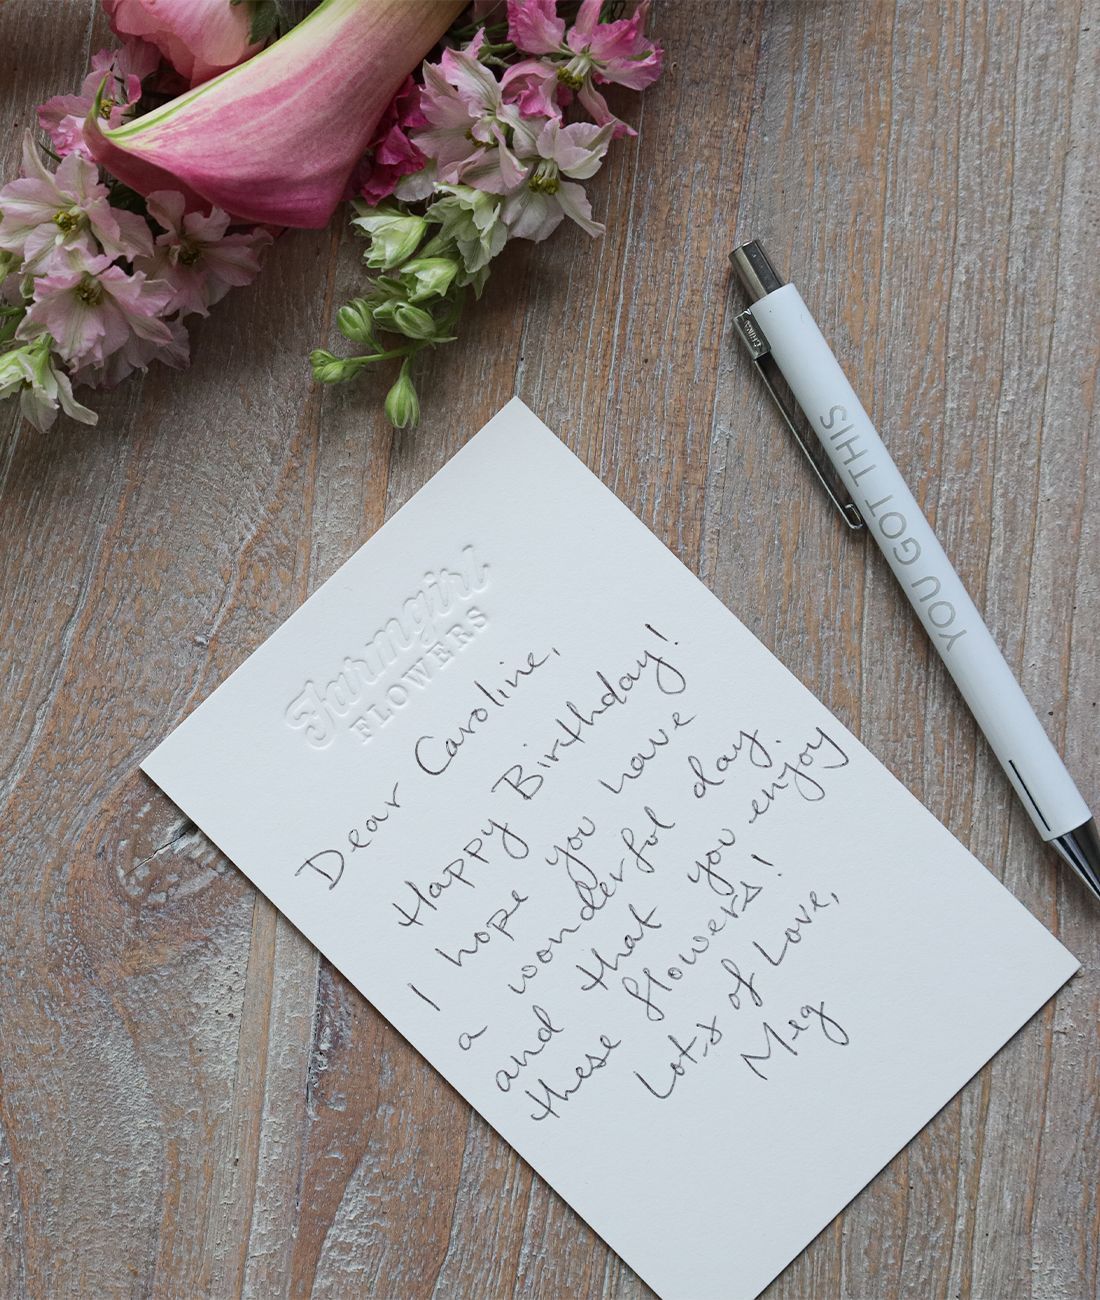 Farmgirl
FLOWERS
Dear Caroline,
Happy Birthday!
I hope you have
a wonderful day.
and that you enjoy
these flowers!
Lots of Love,
Meg
YOU GOT THIS
CHINA